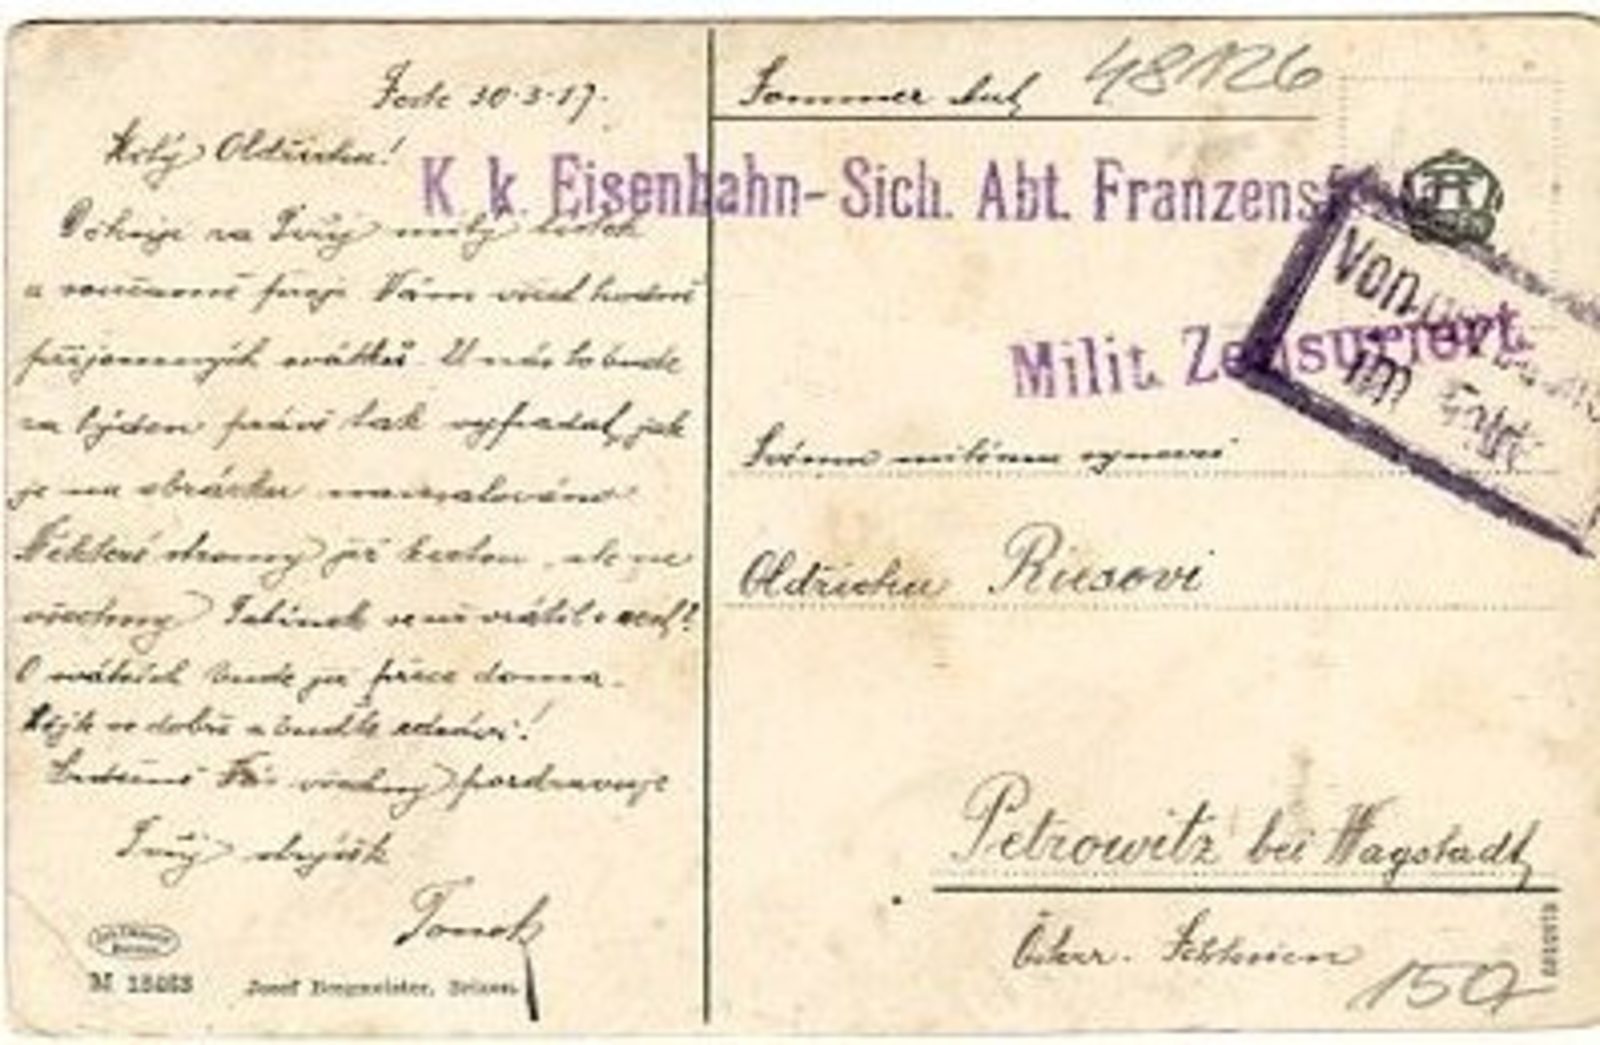 30.3.17.
Milý Oldříchu!
Děkuji za Tvůj milý lístek
a současně přeji Vám všem hodně
příjemných svátků. U nás to bude
za týden právě tak vypadat, jak
je na obrázku namalováno
Některé stromy již kvetou, ale ne
všechny Tatínek se vrátil
O svátcích bude již práce doma.
Mějte se dobře a buďte zdrávi!
Srdečně Vás všechny pozdravuje
Tvůj strýček
Tonek
M 18463 Josef Bergmeister, Brixen.
Sommer 48126
K. k. Eisenbahn-Sich. Abt. Franzens
Milit. Zensuriert.
Von
im
Svému milému synovci
Oldřichu Riesovi
Petrowitz bei Wagstadt
Österr. Schlesien
150